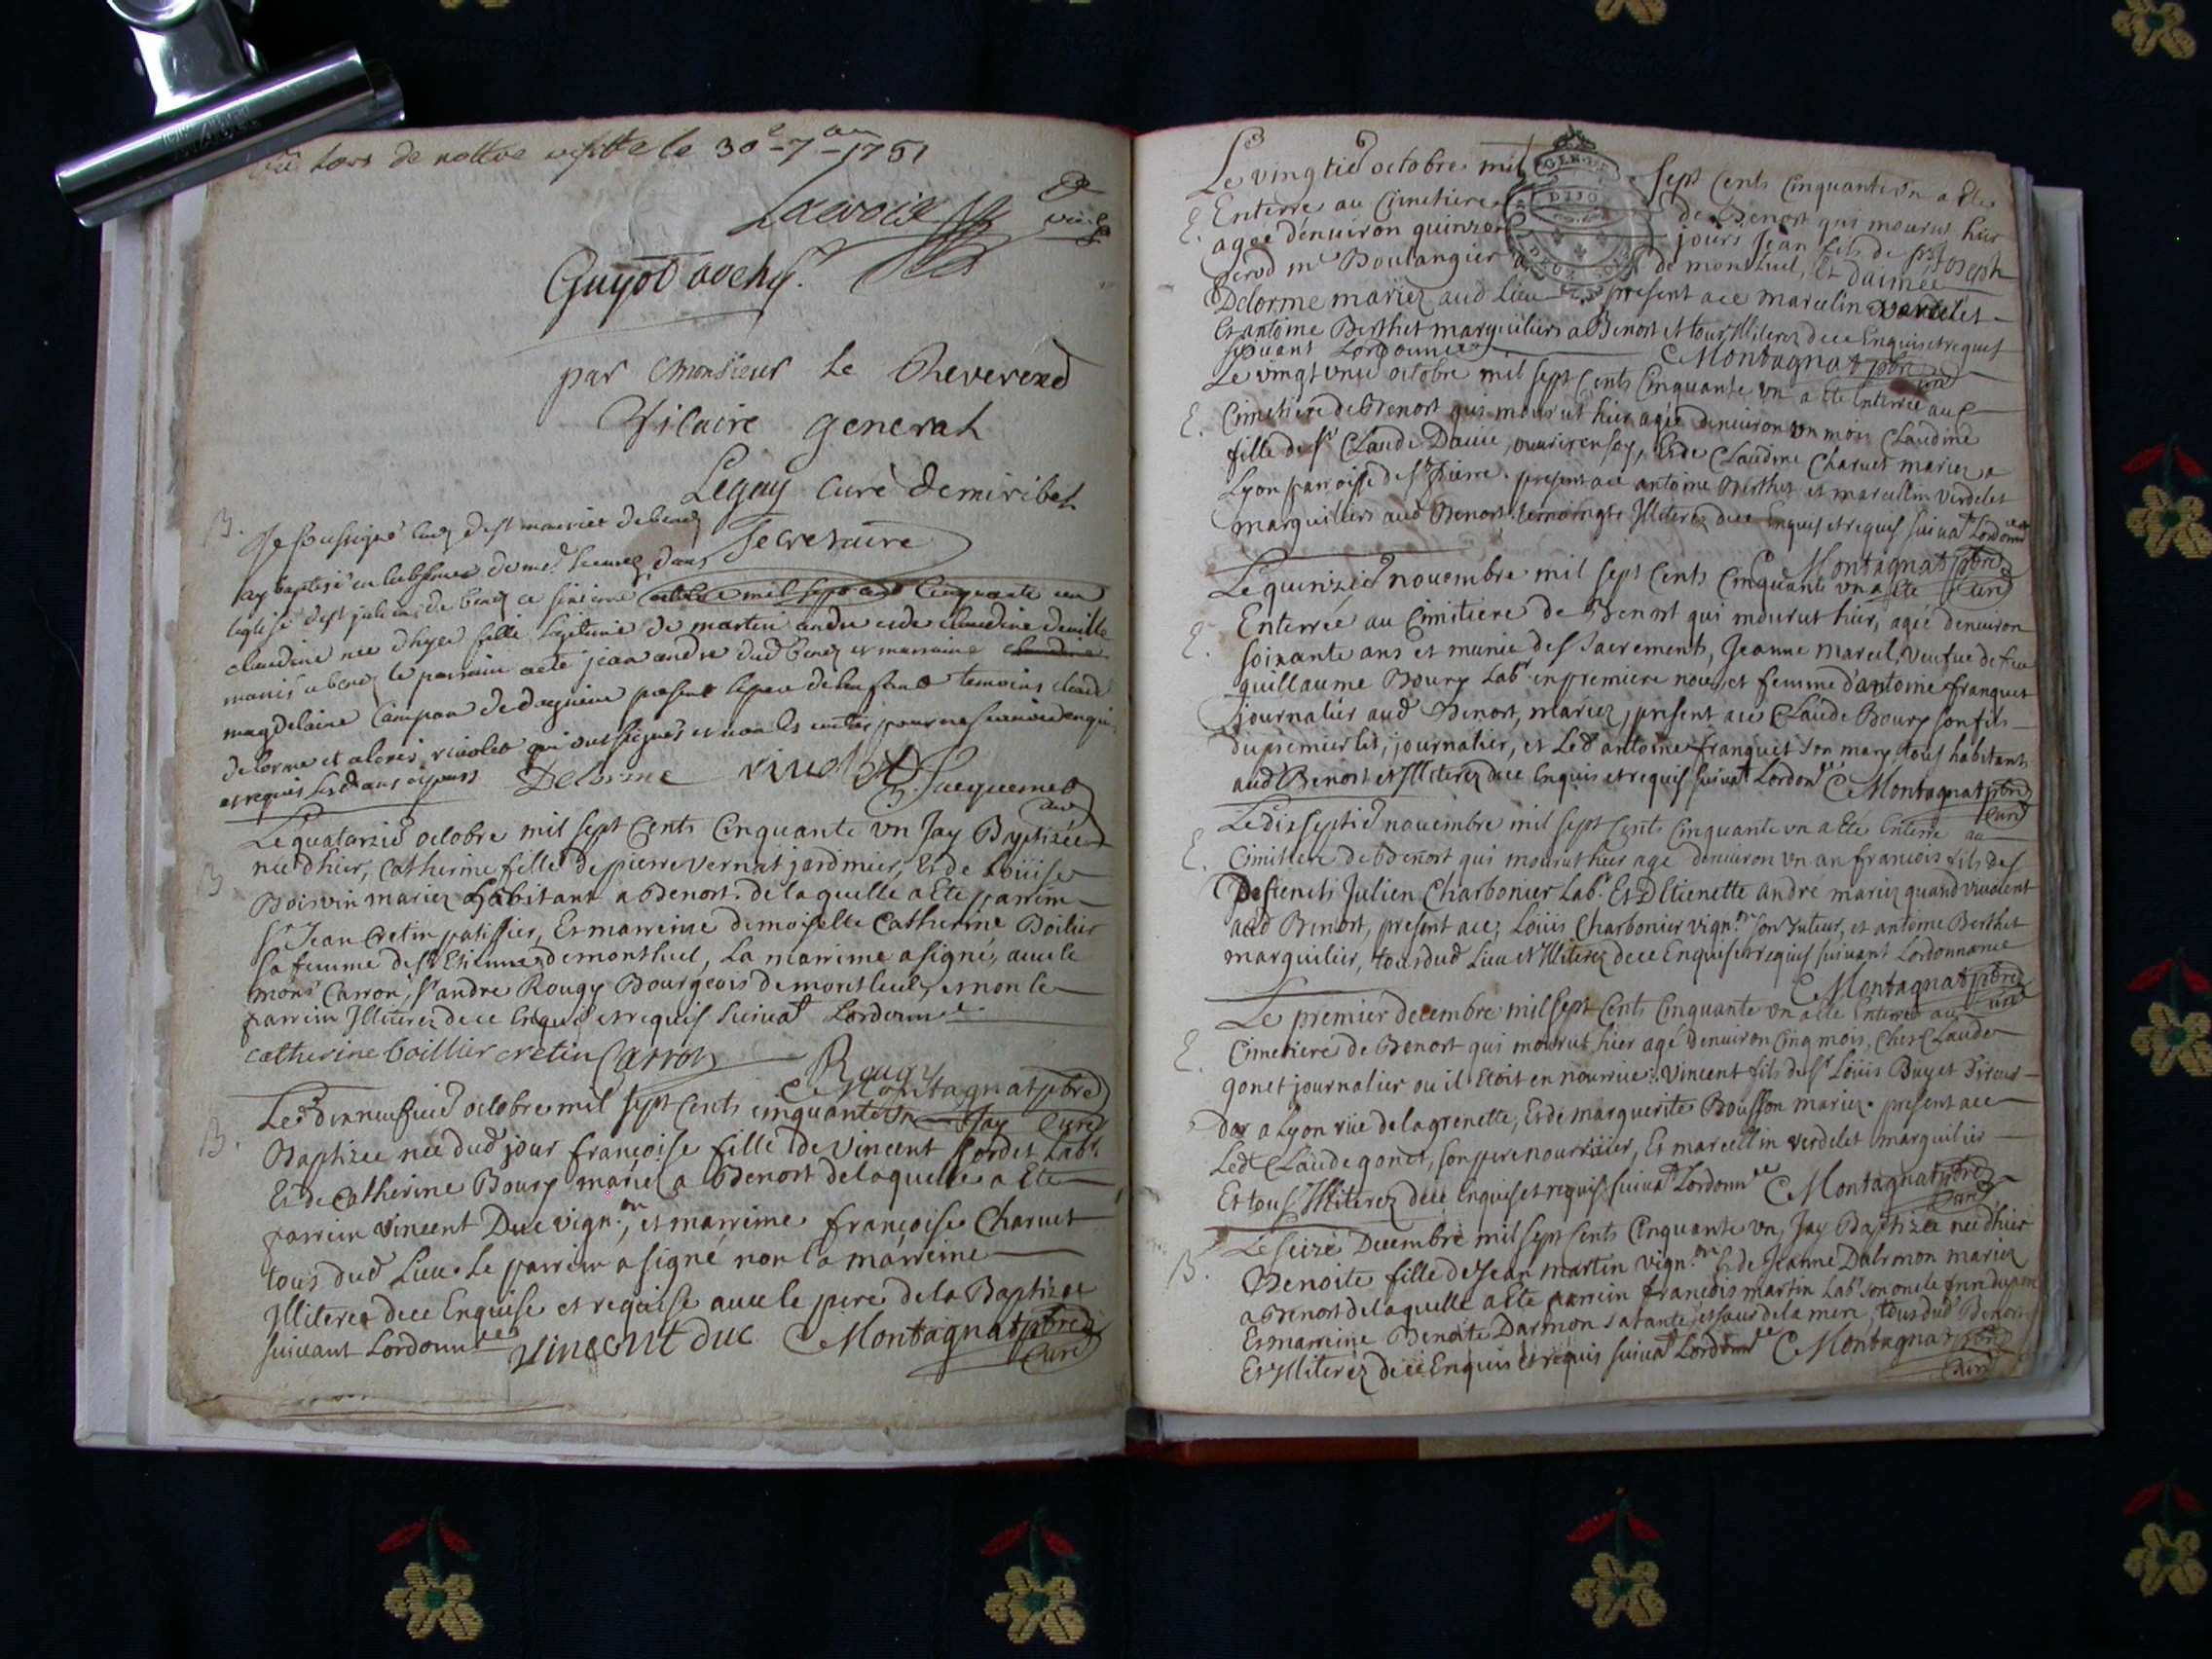 lors de nottre visitte le 30e - 7bre - 1751
Guyot
par Monsieur le Reverend
Vicaire general
Legay curé de miribel
Secretaire
B. Je soussigné curé de st maurice de beno
ay baptisé en labsence de me.
leglise de st julien de beno ce sixieme octobre mil sept cent Cinquante un
claudine née dhyer fille legitime de martin andre et de claudine deville
mariés a beno le parrain a eté jean andre dud beno et marraine claudine
magdelaine Campan de dagnieu present le pere de lenfant temoins claude
delorme et alexis violet qui ont signés et non les autres pour ne scavoir de
Delorme violet Jacquemet
curé
Le quatorzie octobre mil sept Cents Cinquante vn Jay Baptizée
B née dhier, Catherine fille de pierre vernat jardinier, Et de Loüise
Boisvin mariez Habitant a Benost. de laquelle a Ete parrin
Sr Jean Cretin patissier, Et marreine demoiselle Catherine Boilier
sa femme de St Etienne, de montluel, La marrine a signé, avec le
mons Carron, Sr andre Rougy Bourgeois de montluel, et non le
parrein Illiterez de ce Enquis et requis suivat Lordonnce
catherine boillier cretin Carron
Rougy
Montagnat pbre
Curé
Le dixneufvie octobre mil sept Cents cinquante vn Jay
B. Baptizee née dud jour françoise fille de vincent Cordet Labr
Et de Catherine Bourg mariez a Benost de laquelle a Ete
parrein vincent Duc vign.on, et marreine françoise Charvet
tous dud Lieu. Le parrein a signé non la marreine
Illiterée de ce Enquise et requise avec le pere de la Baptizee
suivant Lordonnce vincent duc Montagnat pbre
Curé
Le vingtie octobre mil sept Cents Cinquante vn a Ete
E. Enterre au Cimetiere de Benost qui mourut hier
agée denviron quinze jours Jean fils de Sr Joseph
Perod me Boulangier de montluel, Et daimée
Delorme mariez aud Lieu present ace marcelin verdelet
Et antoine Berthet marguilliers a Benost et tous Illiterez de ce Enquis et requis
suivant Lordonnce Montagnat pbre
curé
Le vingt vnie octobre mil sept Cents Cinquante vn a Ete Enterrée au
E. Cimetiere de Benost qui mourut hier agée denviron vn mois Claudine
fille de Sr Claude Davie, ouvrir en soy, Et de Claudine Charvet mariez a
Lyon parroisse de St Pierre. present ace antoine Berthet et marcellin verdelet
marguilliers aud Benost. temoings Illiterez de ce Enquis et requis suivat Lordonnce
Montagnat pbre
Curé
Le quinzie novembre mil sept Cents Cinquante vn a Ete
E. Enterrée au Cimitiere de Benost qui mourut hier, agée denviron
soixante ans et munie des sacrements, Jeanne marcel, veufve de feu
guillaume Bourg Labr en premiere noces, et femme d'antoine franquet
journalier aud Benost, mariez, present ace Claude Bourg son fils
du premier lit, journalier, et Led antoine franquet son mary, tous habitants
aud Benost et Illiterez de ce Enquis et requis suivat Lordonce Montagnat pbre
Curé
Le dix septie novembre mil sept Cents Cinquante vn a Eté Enterré au
E. Cimitiere de Benost qui mourut hier agé denviron vn an françois fils des
Defuncts Julien Charbonier Labr. Et D Etienette andré mariez quand vivoient
aud Benost, present ace; Loüis Charbonier vign.on son Tuteur, et antoine Berthet
marguilier, tous dud Lieu et Illiterez de ce Enquis et requis suivant Lordonnance
Montagnat pbre
curé
Le premier decembre mil sept Cents Cinquante vn a Ete Enterré au
E. Cimetiere de Benost qui mourut hier agé denviron Cinq mois, Chez Claude
gonet journalier ou il Etoit en nourrice: vincent fils de Sr Loüis Buyet Tireur
dor a Lyon rüe de la grenette, Et de marguerite Bousson mariez. present ace
Ledt Claude gonet, son pere nourricier, Et marcellin verdelet marguilier
Et tous Illiterez de ce Enquis et requis suivat Lordonnce Montagnat pbre
Curé
Le seize Decembre mil sept Cents Cinquante vn, Jay Baptizée née dhier
B. Benoite fille de Jean martin vign.on Et de Jeanne Dalrmon mariez
a Benost de laquelle a Ete parrein françois martin Labr son oncle frere du pere
Et marreine Benoite Darmon sa tante et sœur de la mere, tous dud Benost
Et Illiterez de ce Enquis et requis suivat Lordonnce Montagnat pbre
Curé